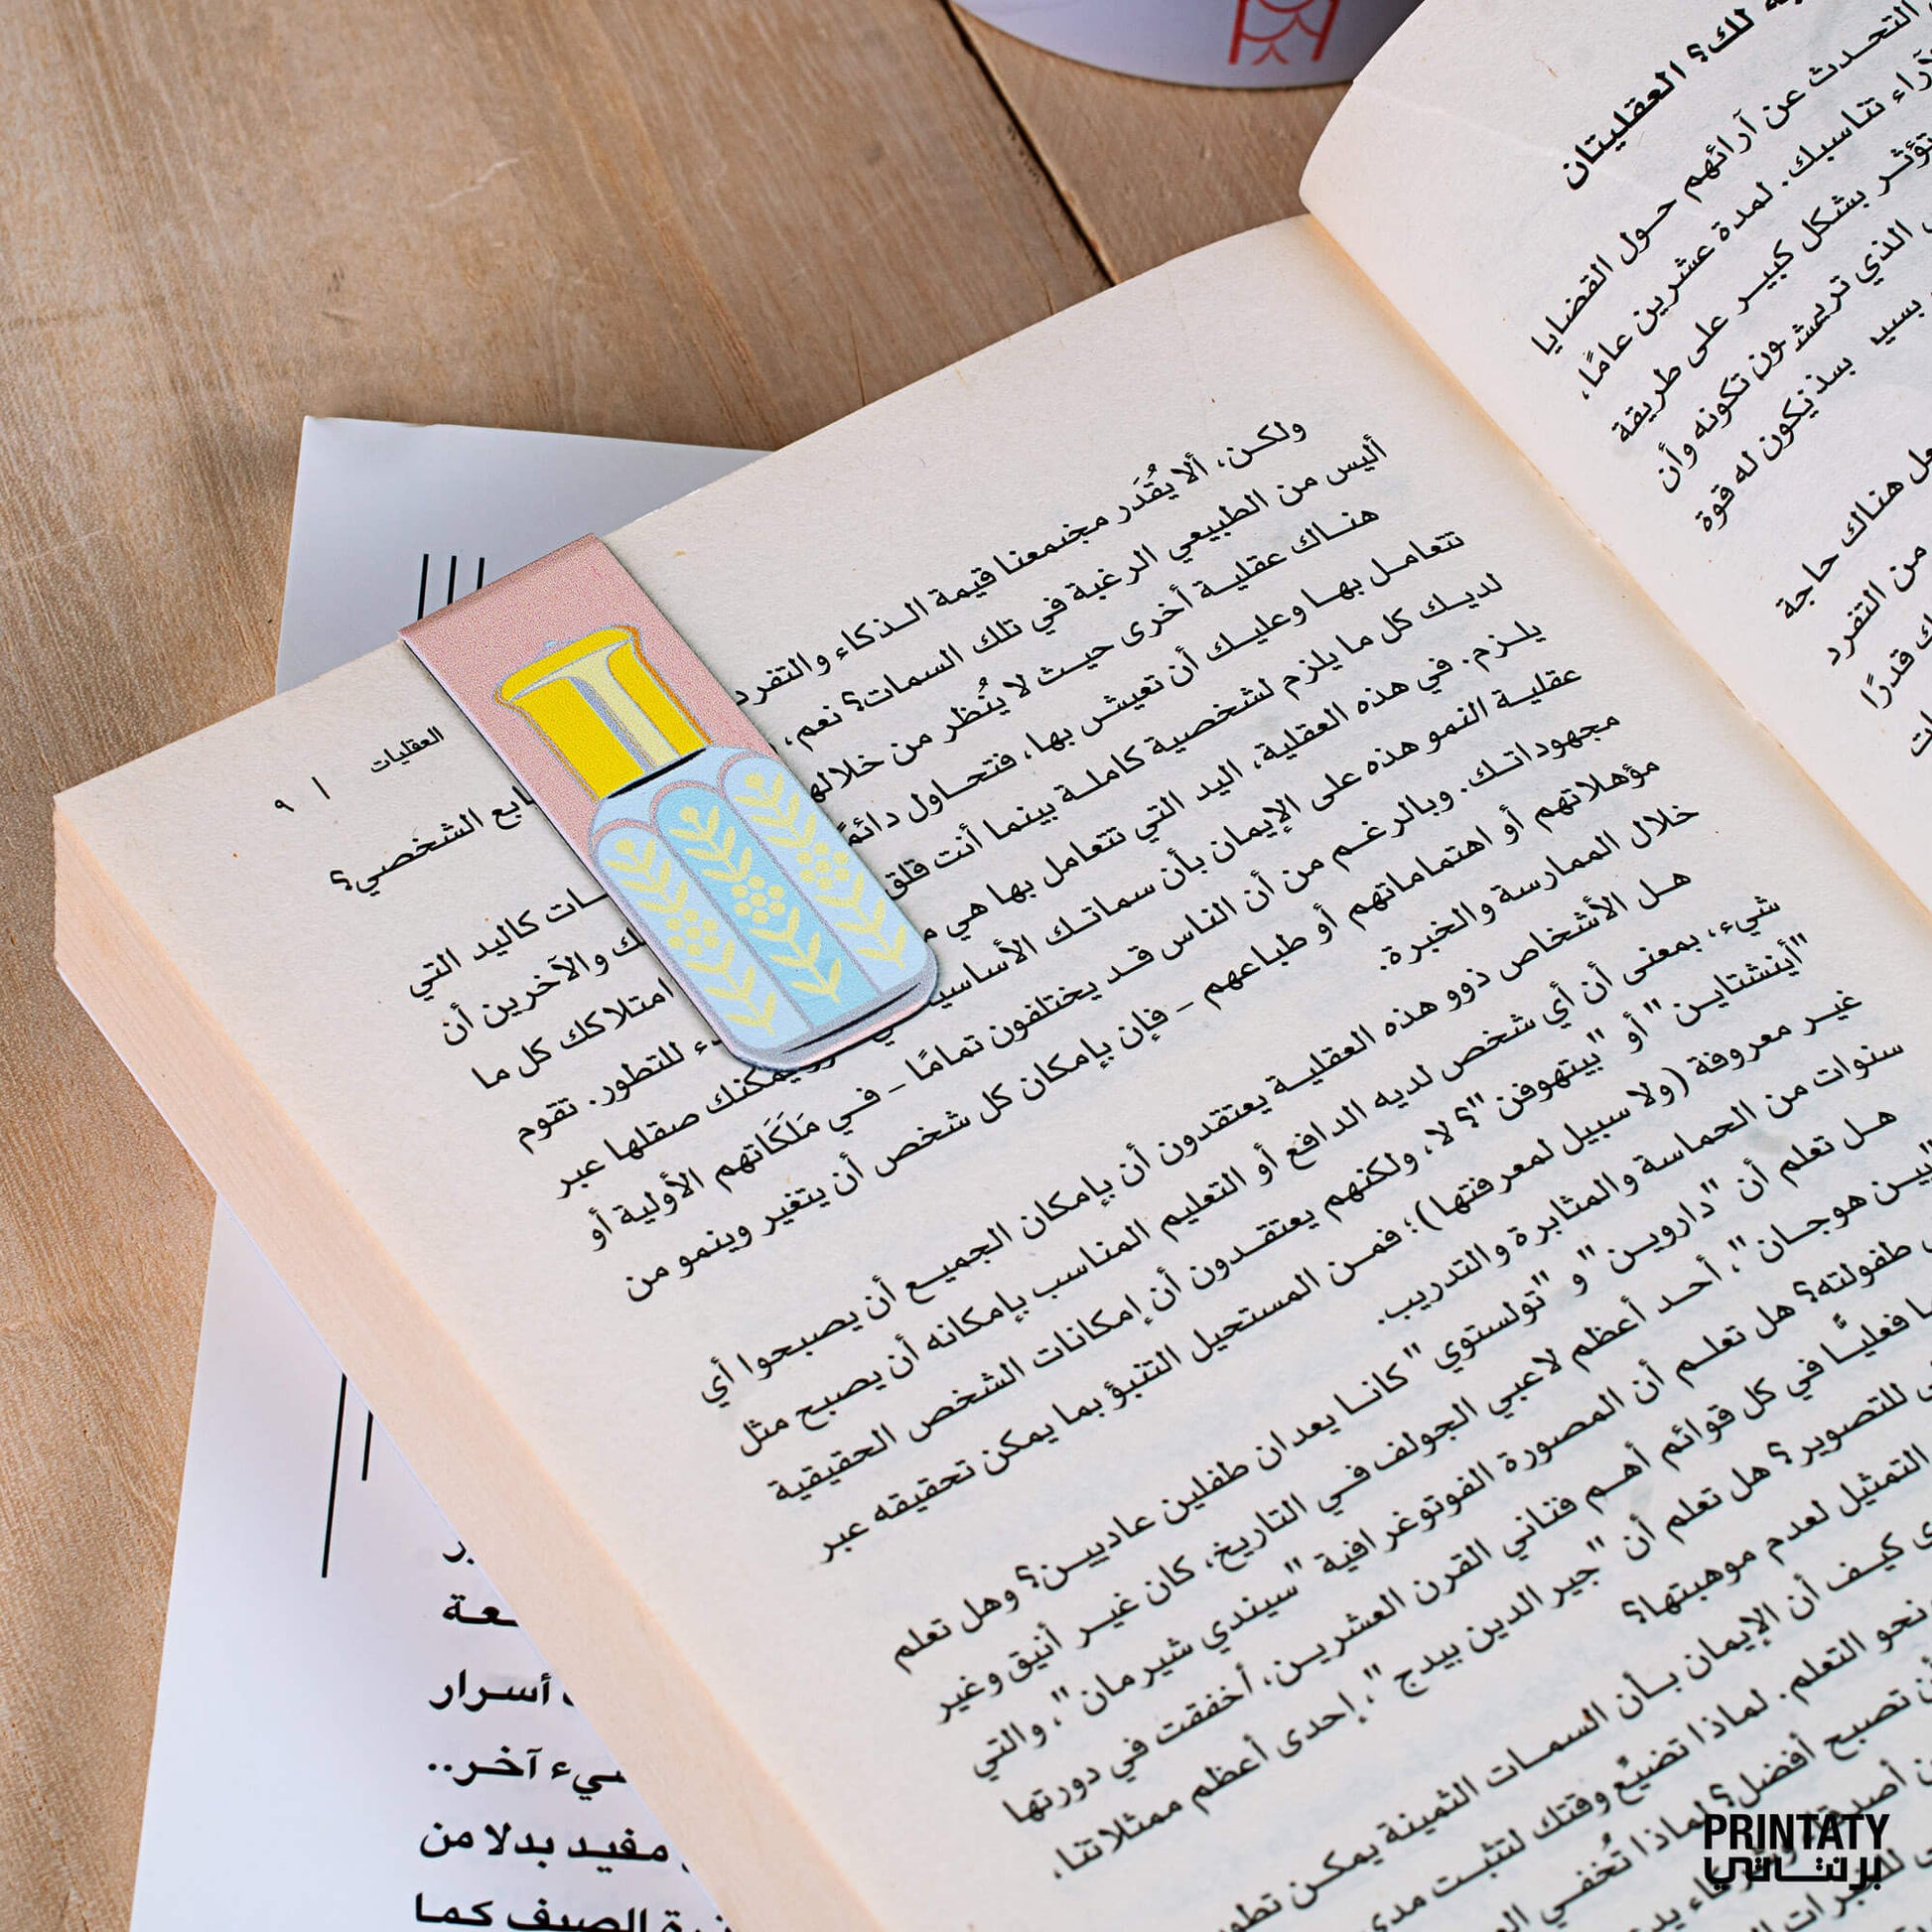 العقليات | ٩
ولكن، ألا يُقدَر مجتمعنا قيمة الذكاء والتفرد
ابع الشخصي؟
أليس من الطبيعي الرغبة في تلك السمات؟ نعم،
هناك عقلية أخرى حيث لا يُنظر من خلالها
ـات كاليد التي
تتعامل بها وعليك أن تعيش بها، فتحاول دائمًا
ـك والآخرين أن
لديك كل ما يلزم لشخصية كاملة بينما أنت قلق
امتلاكك كل ما
يلزم. في هذه العقلية، اليد التي تتعامل بها هي
ـدء للتطور. تقوم
عقلية النمو هذه على الإيمان بأن سماتك الأساسية
يمكنك صقلها عبر
مجهوداتك. وبالرغم من أن الناس قد يختلفون تمامًا - في مَلَكَاتهم الأولية أو
مؤهلاتهم أو اهتماماتهم أو طباعهم - فإن بإمكان كل شخص أن يتغير وينمو من
خلال الممارسة والخبرة.
هل الأشخاص ذوو هذه العقلية يعتقدون أن بإمكان الجميع أن يصبحوا أي
شيء، بمعنى أن أي شخص لديه الدافع أو التعليم المناسب بإمكانه أن يصبح مثل
"أينشتاين" أو "بيتهوفن"؟ لا، ولكنهم يعتقدون أن إمكانات الشخص الحقيقية
غير معروفة (ولا سبيل لمعرفتها)؛ فمن المستحيل التنبؤ بما يمكن تحقيقه عبر
سنوات من الحماسة والمثابرة والتدريب.
هل تعلم أن "داروين" و "تولستوي" كانا يعدان طفلين عاديين؟ وهل تعلم
"بين هوجان"، أحد أعظم لاعبي الجولف في التاريخ، كان غير أنيق وغير
طفولته؟ هل تعلم أن المصورة الفوتوغرافية "سيندي شيرمان"، والتي
فعليًّا في كل قوائم أهم فناني القرن العشرين، أخفقت في دورتها
للتصوير؟ هل تعلم أن "جير الدين بيدج"، إحدى أعظم ممثلاتنا،
التمثيل لعدم موهبتها؟
كيف أن الإيمان بأن السمات الثمينة يمكن
نحو التعلم. لماذا تضيُع وقتك لتثبت مدى
تصبح أفضل؟ لماذا تُخفي
لك؟ العقليتان
التحدث عن آرائهم حول القضايا
تناسبك. لمدة عشرين عامًا،
تؤثر بشكل كبير على طريقة
الذي
تكونه وأن
يكون له قوة
هناك حاجة
من التفرد
قدرًا
ـعة
أسرار
ـيء آخر..
مفيد بدلا من
الصيف كما
PRINTATY
برنتاتي